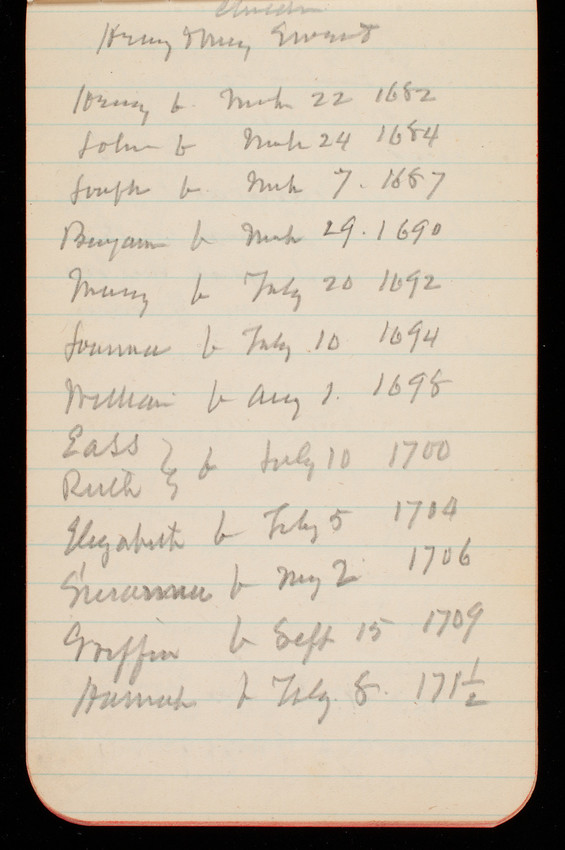 Children
Henry & Mary
Henry b. Mch 22 1682
John b Mch 24 1684
Joseph b. Mch 7. 1687
Benjamin b Mch 29. 1690
Mary b Feby 20 1692
Joanna b Feby 10 1694
William b Aug 1. 1698
Eass } b July 10 1700
Ruth
Elizabeth b Feby 5 1704
Susanna b May 2 1706
Griffin b Sept 15 1709
Hannah b Feby. 8. 171 1/2